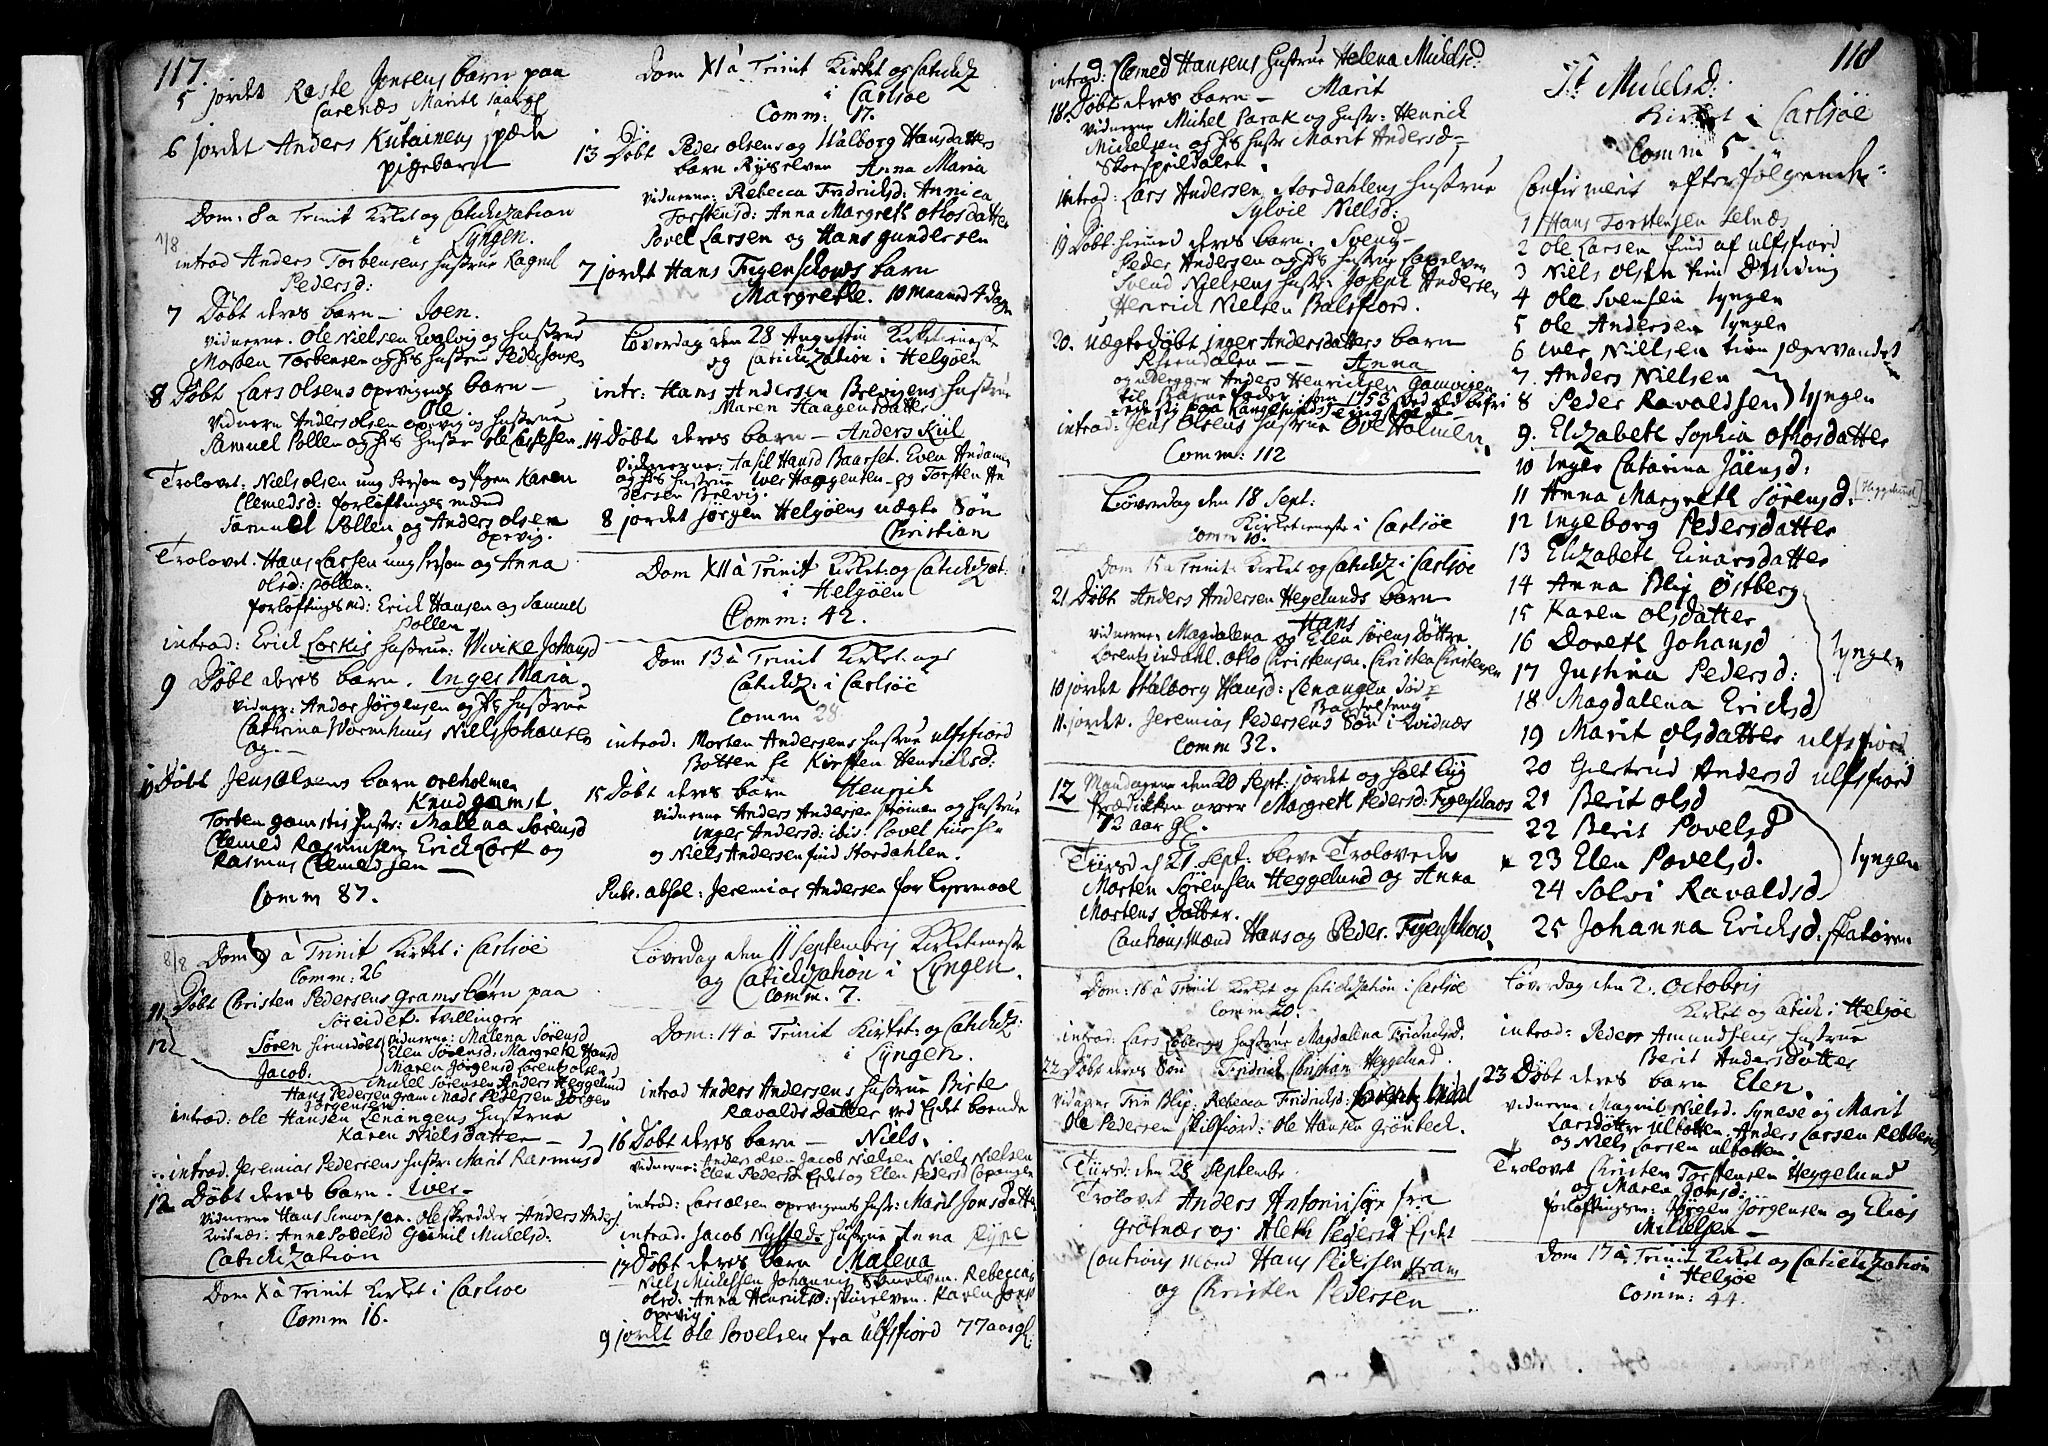 117.
5 jordet Raste Jonsens barn paa
Carenæs Marite
6 jordet Anders Kutainens spæde
pigebarn
Dom: 8 a Trinit Kirket og Catichization
i Lyngen.
1/8
introd Anders Torbensens hustrue Ragnel
Pedersd:
7 Døbt deres barn – Joen.
vidnerne. Ole Nielsen og hustrue
Morten Torbensen og hustrue
8 Døbt Lars Olsens opevigens barn –
Ole
vidnern Anders olsen opevig og hustrue
Samuel Pollen og hustr
Trolovet: Niels olsen ung Person og Pigen Karen
Clemedsd: forløftninges mænd
Samuel Pollen og Anders olsen
opevig.
Trolovet. Hans Larsen ung Person og Anna
olsd: Pollen.
forløftningsmd: Erick Hansen og Samuel
Pollen
introd: Erick Lorkis hustrue: Wivike Johansd
9 Døbt deres barn. Inger Maria
vidner: Andor Jørgensen og hustrue
Cathrina Wormhuus Niels Johansen
og –
10 Døbt Jens Olsens barn oreholmen
Knud gamst.
Torben gamstis hustr: Malena Sørensd
Clemed Rasmusen, Erick Lork og
Rasmus Clemedsen –
Comm 87.
8/8
Dom 9 à Trinit Kirket i Carlsøe
Comm: 26
11 Døbt Christen Pedersens Grams børn paa
Søreidet. tvillinger
12
Søren hiemedøbt vidnerne: Malena Sørensd
Elen Sørensd: Margrete Hansd
Jacob. Maren Jørgensd Lorents olsen
Mickel Sørensen Anders Heggelund
Hans Pedersen gram Mads Pedersen Jørgen
Jørgensen
introd: ole Hansen Lenangens hustrue
Karen Nielsdatter –
introd. Jeremias Pedersens hustr: Marit Rasmusd
12 Døbt deres barn. Iver –
vidnerne Hans Simonsen. ole skredder Anders Anders
Kvitnæs: Anne Povelsd Gunil Mickelsd:
Catichization
Dom X à Trinit Kirket i Carlsøe
Comm 16.
Dom XI à Trinit Kirket og Catichiz
i Carlsøe
Comm: 17.
13 Døbt Peder olsens og Walborg Hansdatters
barn Ryselven Anna Maria
vidnerne: Rebecca Fredricksd: Annica
Torstensd: Anna Margreth Othosdatter
Povel Larsen og Hans gundersen
7 jordet Hans Figenschows barn
Margrethe. 10 Maaned 4 dage
Løverdag den 28 Augustii Kirketieneste
og Catichization i Helgøen
intr: Hans Andersen Brevigens hustrue
Maren Haagensdatter
14 Døbt deres barn – Anders Kiil
vidnerne: Aasil Hansd Baarset. Even
og hustrue Iver Haagensen – og Torsten An
dersen Brevig.
8 jordet Jørgen Helgøens uægte Søn
Christian
Dom XII à Trinit Kirket: og Catichizat:
i Helgøen
Comm: 42.
Dom 13 à Trinit Kirket og
Catichiz: i Carlsøe
Comm 28
introd: Morten Andersens hustrue Ulfsfiord
Botten Kirsten Henricksd:
15 Døbt deres barn Henrich
vidnerne Anders Andersen strømen og hustrue
Inger Andersd: ibid: Povel
og Niels Andersen find Stordahlen.
Pub. absol: Jeremias Andersen for Leyermaal
Løverdag den 11 Septembris Kirketieneste
og Catichization i Lyngen.
Comm. 7.
Dom: 14 à Trinit Kirket: og Catichiz:
i Lyngen.
introd Anders Andersens hustrue Birte
Ravalds Datter ved Eydet boende
16 Døbt deres barn – Niels.
vidnerne: Anders olsen Jacob Nielsen Niels Nielsen
Elen Pedersd Eydet og Elen Pedersd
introd: Lars olsen opevigens hustr: Marit Jonsdatter
introd: Jacob Nysteds hustrue Anna Rype
17 Døbt deres barn Malena
Niels Mickelsen Johannis Skinelven. Rebecca
olsd: Anna Henricksd: skinelven. Karen Jons
opevig
9 jordet ole Povelsen fra Ulfsfiord 77 aar gl:
118
introd: Clemed Hansens hustrue Helena Mickelsd:
18. Døbt deres barn – Marit
vidnerne Michel Parak og hustr: Henrich
Mickelsen og hustr Marit Andersd –
Skorspeildalen.
introd: Lars Andersen Stordahlens hustrue
Sylvie Nielsd:
19 Døbt hiemmed deres barn. Svend –
Peder Andersen og hustrue
Svend Nielsens hustr: Joseph Andersen
Henrich Nielsen Balsfiord.
20. uægte døbt inger Andersdatters barn
– – Anna
og udlegger Anders Henricksen Gamvigen
til Barnefader: som 1753
introd: Jens Olsens hustrue Oreholmen.
Comm: 112
Løverdag den 18 Sept:
Kirketieneste i Carlsøe
Comm 10.
Dom 15 à Trinit. Kirket og Catichiz i Carlsøe
21 Døbt Anders Andersen Hegelunds barn
Hans
vidnerne: Magdalena og Elen Sørens Døttre
Lorents indahl. Otho Christensen. Christen Christensen
10 jordet Walborg Hansd: Lenangen død
Barselseng
11. jordet. Jeremias Pedersens Søn i Kvidnæs
Comm 32.
12 Mandagen den 20 Sept: jordet og holt Liig
Prædicken over Margreth Pedersd: Figenschaos
72 aar gl.
Tiirsd d 21 Sept: bleve Trolovede
Morten Sørensen Heggelund og Anna
Mortens Datter.
Cautions Mænd Hans og Peder Figenschow.
Dom: 16 à Trinit Kirket og Catichization i Carlsøe
Comm 20.
introd: Lars hustrue Magdalena Fridricksd.
22 Døbt deres Søn Fridrich Christian Heggelund.
vidnerne Trin Blix. Rebecca Fridricksd:
Ole Pedersen skilfiord: ole Hansen Grønbech.
Tiirsd: den 28 Septembr.
Trolovet Anders Antonisøn fra
Grøtnæs og Aleth Pedersd Eydet
Cautions Mænd Hans Pedersen gram
og Christen Pedersen –
St Mickelsd:
Kirket i Carlsøe
Comm 5
Confirmerit efterfølgende:
1 Hans Torstensen
2 Ole Larsen find af Ulfsfiord
3 Niels olsen
4 Ole Svensen lyngen
5 Ole Andersen lyngen
6 Iver Nielsen jægervandet
7. Anders Nielsen
8 Peder Ravaldsen } lyngen
9. Elizabeth Sophia Othosdatter
10 Inger Catarina Jöensd:
11 Anna Margreth Sørensd. (Heggelund)
12 Ingeborg Pedersdatter
13 Elizabeth Einarsdatter
14 Anna Blix Østberg
15 Karen olsdatter
16 Doreth Johansd
17 Justina Pedersd:
18 Magdalena Ericksd
lyngen
19 Marit olsdatter ulfsfiord
20 Giertrud Andersd ulfsfiord
21 Berit olsd
22 Berit Povelsd
23 Elen Povelsd.
lyngen
24 Solvi Ravaldsd
25 Johanna Ericksd: skatøren
Løverdag den 2. Octobris
Kirket og Catich: i Helgøe
introd: Peder Amundsens hustrue
Berit Andersdatter
23 Døbt deres barn Elen.
vidnerne Magnil Nielsd. Syneve og Marit
Larsdøtter Ulbotten. Anders Larsen
og Niels Larsen ulbotten
Trolovet Christen Torstensen Heggelund
og Maren Jonsd:
forløftningsm: Jørgen Jørgensen og Elias
Mickelsen –
Dom 17 à Trinit Kirket og Catichization
i Helgøe
Comm: 44.